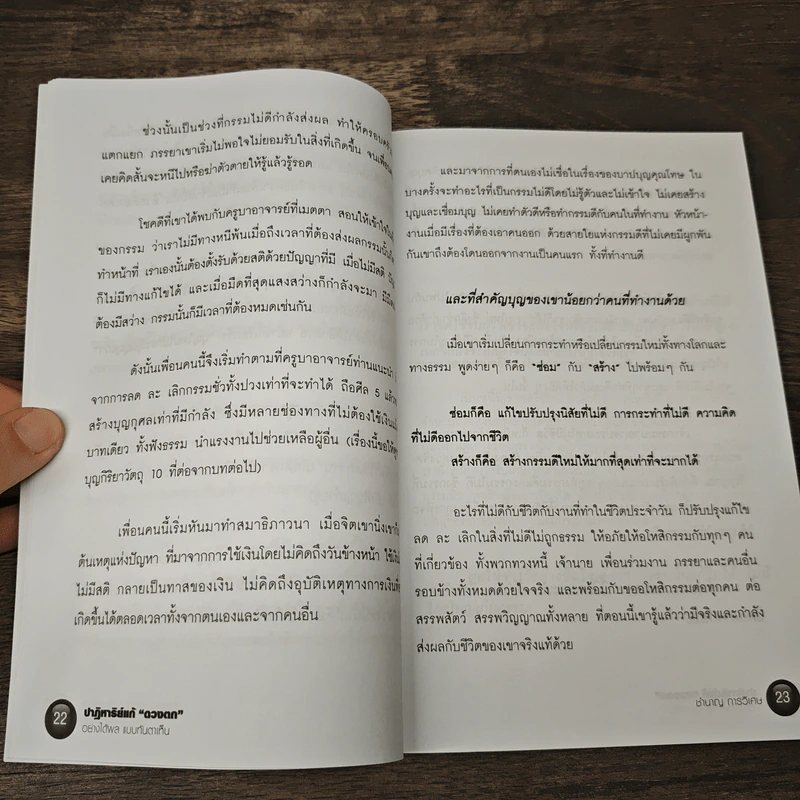 ช่วงนั้นเป็นช่วงที่กรรมไม่ดีกำลังส่งผล ทำให้ครอบครัว
แตกแยก ภรรยาเขาเริ่มไม่พอใจไม่ยอมรับในสิ่งที่เกิดขึ้น จนเพื่อน
เคยคิดสั้นจะหนีไปหรือฆ่าตัวตายให้รู้แล้วรู้รอด
โชคดีที่เขาได้พบกับครูบาอาจารย์ที่เมตตา สอนให้เข้าใจใน
ของกรรม ว่าเราไม่มีทางหนีพ้นเมื่อถึงเวลาที่ต้องส่งผลกรรมนั้น
ทำหน้าที่ เราเองนั้นต้องตั้งรับด้วยสติด้วยปัญญาที่มี เมื่อไม่มีสติ
ก็ไม่มีทางแก้ไขได้ และเมื่อมืดที่สุดแสงสว่างก็กำลังจะมา มี
ต้องมีสว่าง กรรมนั้นก็มีเวลาที่ต้องหมดเช่นกัน
ดังนั้นเพื่อนคนนี้จึงเริ่มทำตามที่ครูบาอาจารย์ท่านแนะนำ
จากการลด ละ เลิกกรรมชั่วทั้งปวงเท่าที่จะทำได้ ถือศีล 5 แล้ว
สร้างบุญกุศลเท่าที่มีกำลัง ซึ่งมีหลายช่องทางที่ไม่ต้องใช้เงิน
บาทเดียว ทั้งฟังธรรม นำแรงงานไปช่วยเหลือผู้อื่น (เรื่องนี้ขอให้
บุญกิริยาวัตถุ 10 ที่ต่อจากบทต่อไป)
เพื่อนคนนี้เริ่มหันมาทำสมาธิภาวนา เมื่อจิตเขานิ่งเขาก็
ต้นเหตุแห่งปัญหา ที่มาจากการใช้เงินโดยไม่คิดถึงวันข้างหน้า ใช้เงิน
ไม่มีสติ กลายเป็นทาสของเงิน ไม่คิดถึงอุบัติเหตุทางการเงิน
เกิดขึ้นได้ตลอดเวลาทั้งจากตนเองและจากคนอื่น
22 ปาฏิหาริย์แก้ "ดวงตก"
อย่างได้ผล แบบทันตาเห็น
และมาจากการที่ตนเองไม่เชื่อในเรื่องของบาปบุญคุณโทษ ใน
บางครั้งจะทำอะไรที่เป็นกรรมไม่ดีโดยไม่รู้ตัวและไม่เข้าใจ ไม่เคยสร้าง
บุญและเชื่อมบุญ ไม่เคยทำตัวดีหรือทำกรรมดีกับคนในที่ทำงาน หัวหน้า-
งานเมื่อมีเรื่องที่ต้องเอาคนออก ด้วยสายใยแห่งกรรมดีที่ไม่เคยมีผูกพัน
กันเขาถึงต้องโดนออกจากงานเป็นคนแรก ทั้งที่ทำงานดี
และที่สำคัญบุญของเขาน้อยกว่าคนที่ทำงานด้วย
เมื่อเขาเริ่มเปลี่ยนการกระทำหรือเปลี่ยนกรรมใหม่ทั้งทางโลกและ
ทางธรรม พูดง่ายๆ ก็คือ "ซ่อม" กับ "สร้าง" ไปพร้อมๆ กัน
ซ่อมก็คือ แก้ไขปรับปรุงนิสัยที่ไม่ดี การกระทำที่ไม่ดี ความคิด
ที่ไม่ดีออกไปจากชีวิต
สร้างก็คือ สร้างกรรมดีใหม่ให้มากที่สุดเท่าที่จะมากได้
อะไรที่ไม่ดีกับชีวิตกับงานที่ทำในชีวิตประจำวัน ก็ปรับปรุงแก้ไข
ลด ละ เลิกในสิ่งที่ไม่ดีไม่ถูกธรรม ให้อภัยให้อโหสิกรรมกับทุกๆ คน
ที่เกี่ยวข้อง ทั้งพวกทวงหนี้ เจ้านาย เพื่อนร่วมงาน ภรรยาและคนอื่น
รอบข้างทั้งหมดด้วยใจจริง และพร้อมกับขออโหสิกรรมต่อทุกคน ต่อ
สรรพสัตว์ สรรพวิญญาณทั้งหลาย ที่ตอนนี้เขารู้แล้วว่ามีจริงและกำลัง
ส่งผลกับชีวิตของเขาจริงแท้ด้วย
ชำนาญ การวิเศษ 23